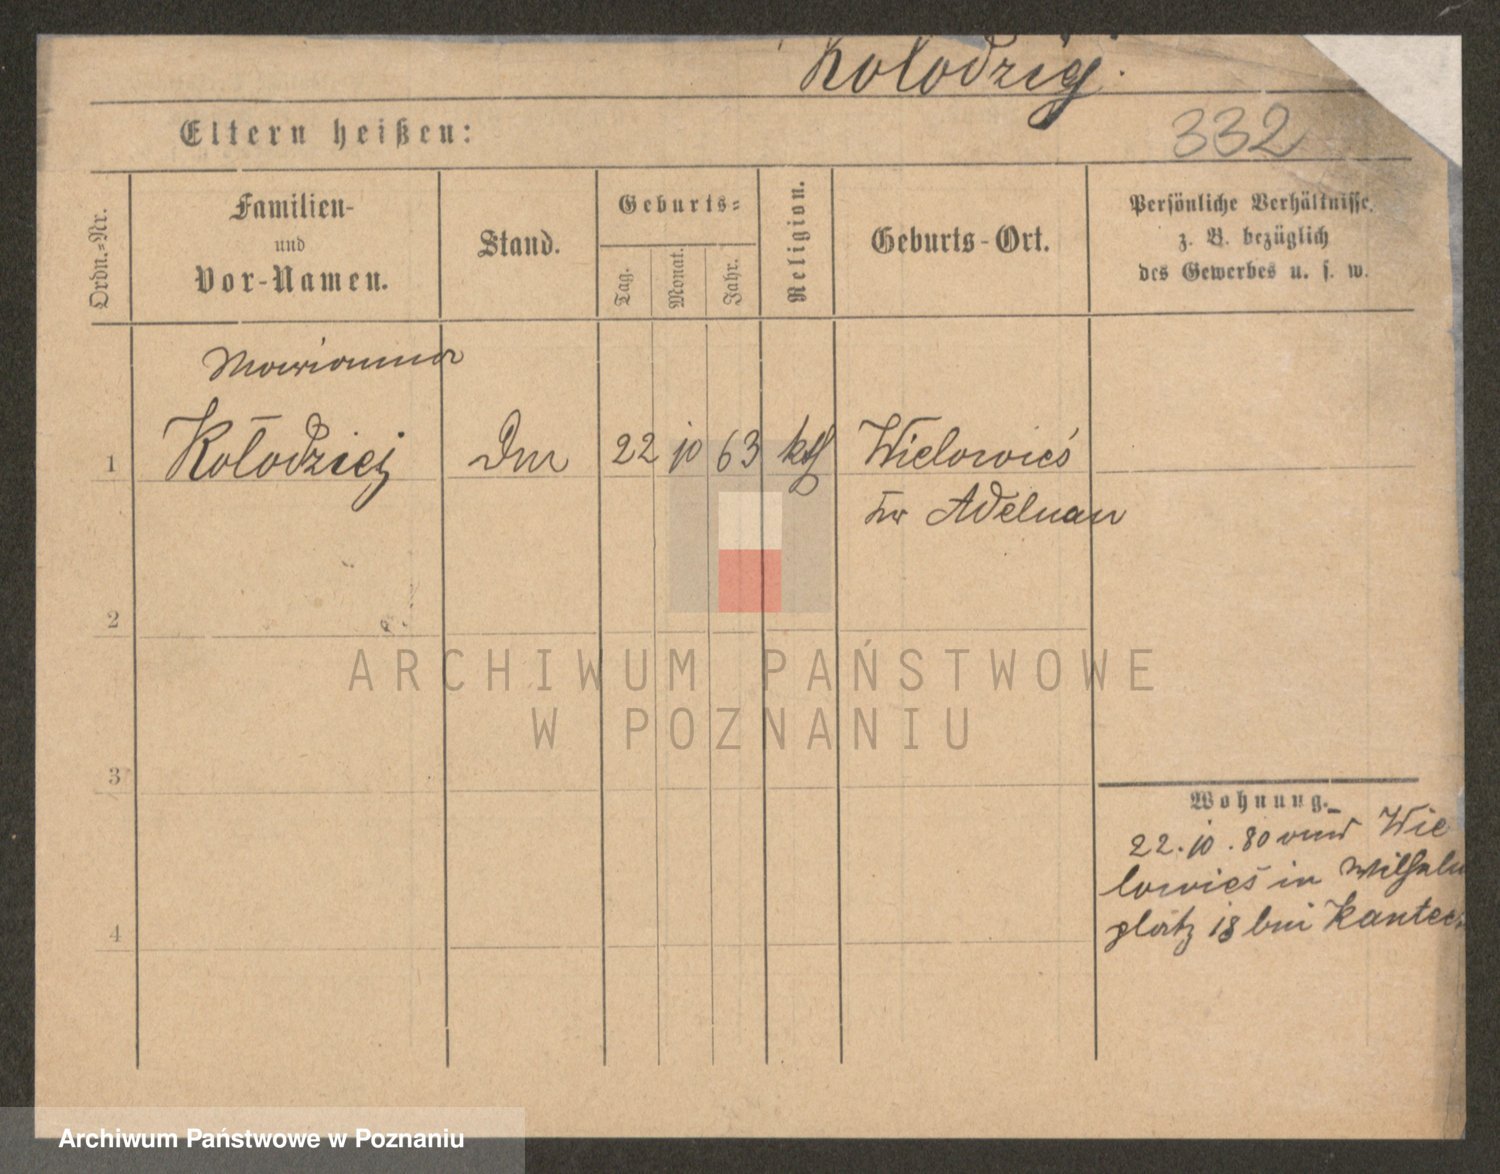 Kolodziej.
332
Eltern heißen:
Ordn.-Nr.
Familien-
und
Vor-Namen.
Stand.
Geburts-
Tag.
Monat.
Jahr.
Religion.
Geburts-Ort.
Persönliche Verhältnisse,
z. B. bezüglich
des Gewerbes u. s. w.
Marianna
1 Kołodziej 22 10 63 kth Wielowieś
Kr Adelnau
2
3
4
Wohnung.
22.10.80 von Wie
lowieś in Wilhelm
platz 18 bei
ARCHIWUM PAŃSTWOWE
W POZNANIU
Archiwum Państwowe w Poznaniu